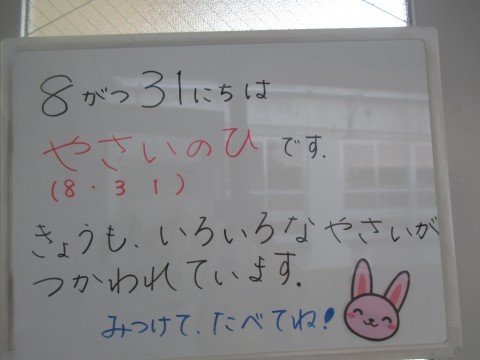 8がつ31にちは
やさいのひです.
(8.31)
きょうも、いろいろなやさいが
つかわれています.
みつけて、たべてね!